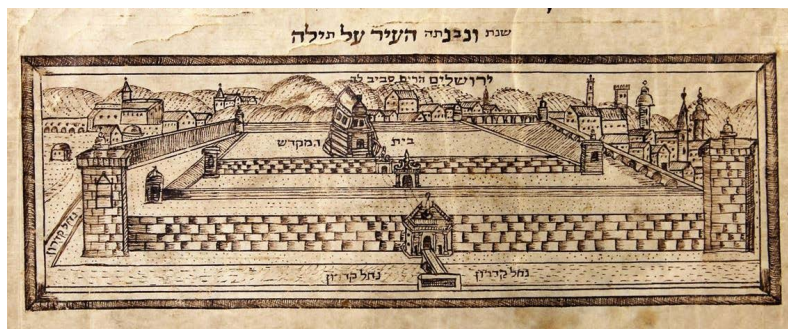 שנת ונבנתה העיר על תילה
ירושלים הרים סביב לה
בית המקדש
נחל קדרון
נחל קדרון
נחל קדרון